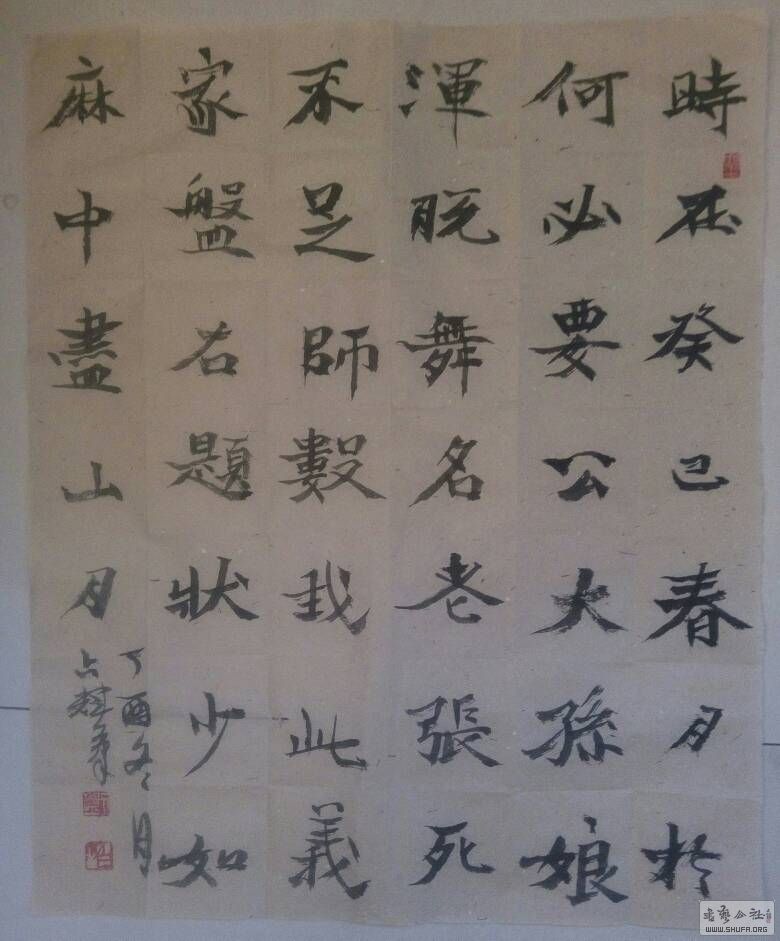 時在癸巳春月於
何必要公大孫娘
渾脱舞名老張死
不足師數我此義
家盤名題狀少如
麻中盡山月
丁酉冬月
書艺公社
WWW.SHUFA.ORG